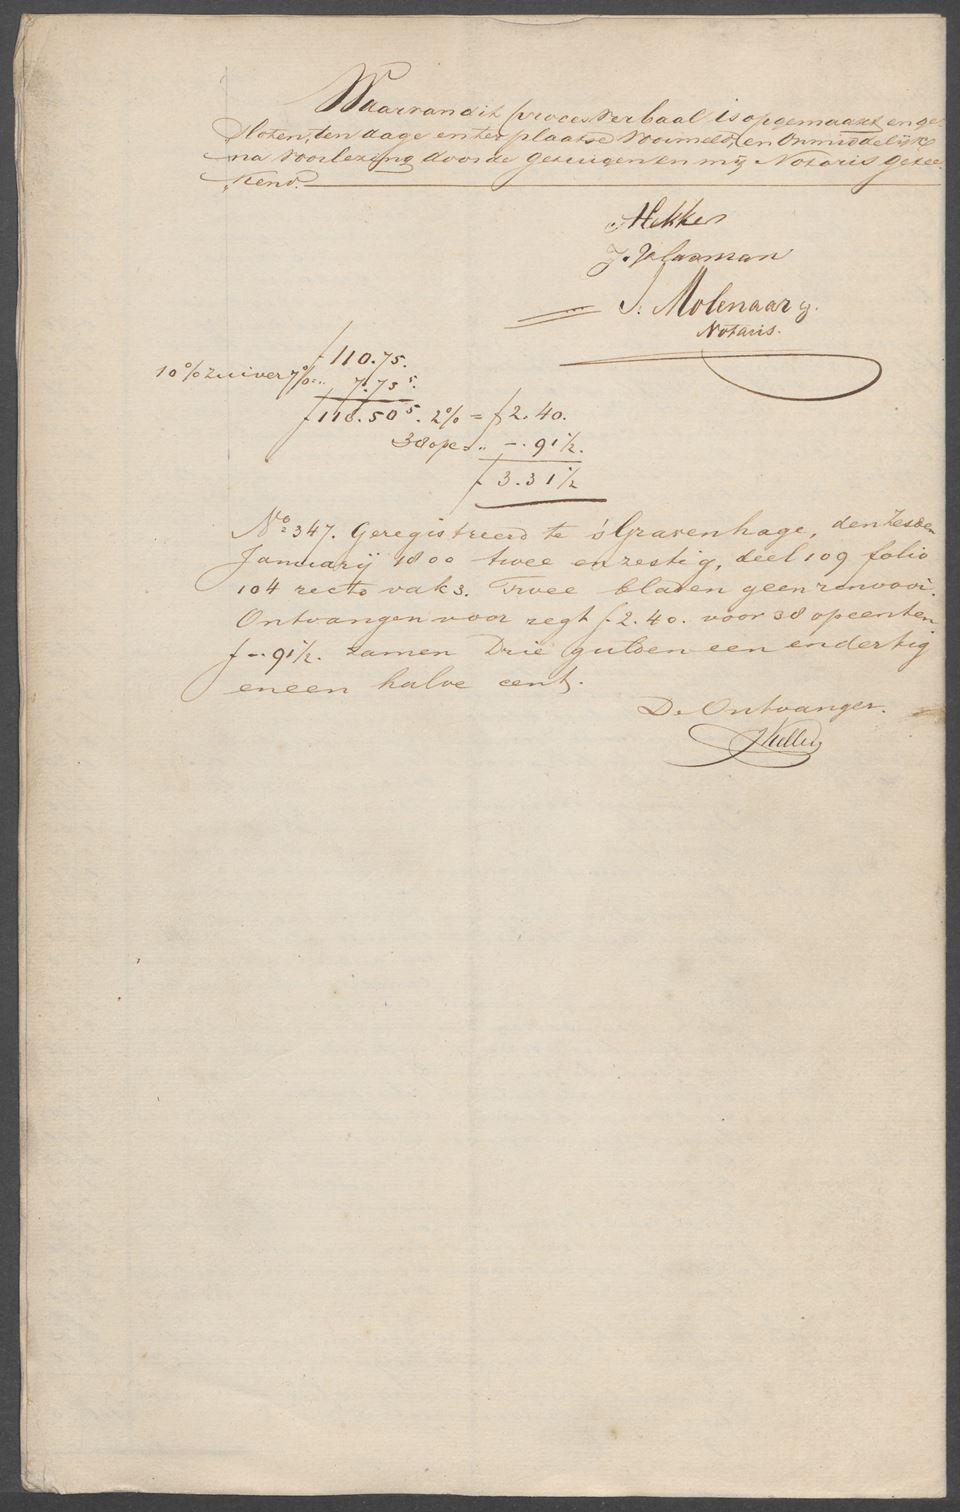 Waarvan dit proces verbaal is opgemaakt en ge-
sloten, ten dage en ter plaatse voormeld, en onmiddelijk
na voorlezing door de getuigen en mij Notaris getee-
kend.
Hekker
J. Plaarman
J. Molenaar
Notaris.
f 110.75.
10% zuiver 7% = „ 7.75⁵.
f 118.50⁵. 2% = f 2.40.
38 opc = „ -. 91½.
f 3.31½
No 347. Geregistreerd te s'Gravenhage, den zesden
Januarij 1800 twee en zestig, deel 109 folio
104 recto vak 3. Twee bladen geen renvooi.
Ontvangen voor regt f 2.40. voor 38 opcenten
f -. 91½. zamen Drie gulden een en dertig
en een halve cent.
De Ontvanger.